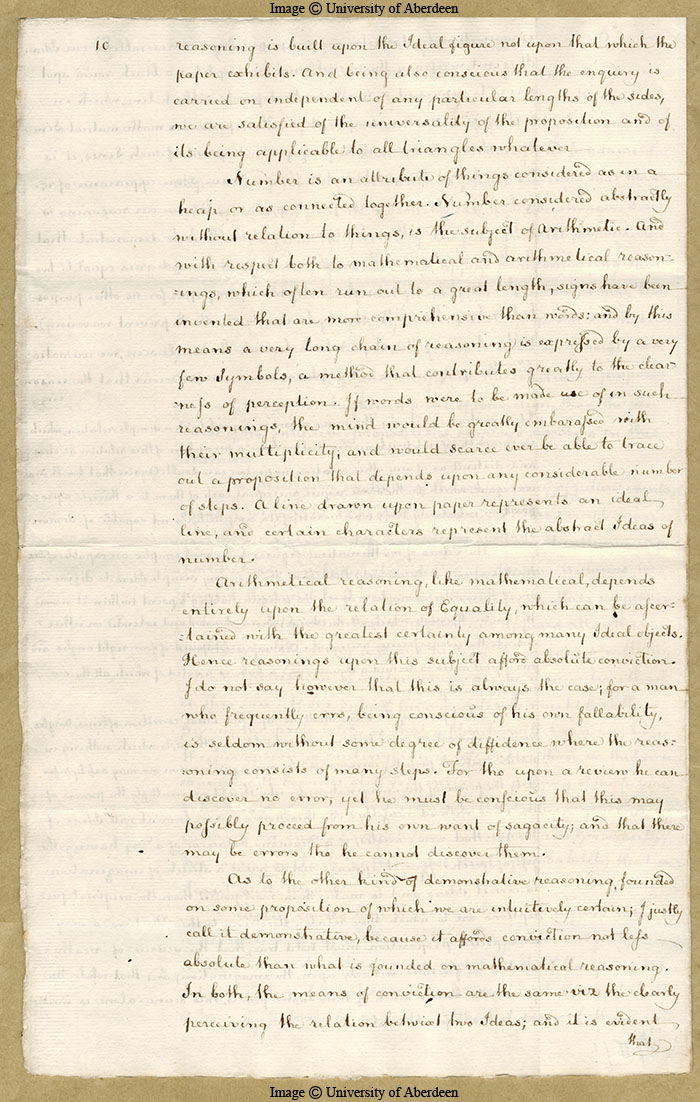 Image © University of Aberdeen
10
reasoning is built upon the Ideal figure not upon that which the
paper exhibits. And being also conscious that the enquiry is
carried on independent of any particular lengths of the sides,
we are satisfied of the universality of the proposition and of
its being applicable to all triangles whatever
Number is an attribute of things considered as in a
heap or as connected together. Number considered abstractly
without relation to things, is the subject of Arithmetic. And
with respect both to mathematical and arithmetical reason-
-ings, which often run out to a great length, signs have been
invented that are more comprehensive than words: and by this
means a very long chain of reasoning is expreſsed by a very
few Symbols, a method that contributes greatly to the clear-
neſs of perception. If words were to be made use of in such
reasonings, the mind would be greatly embaraſsed with
their multiplicity, and would scarce ever be able to trace
out a proposition that depends upon any considerable number
of steps. A line drawn upon paper represents an ideal
line, and certain characters represent the abstract Ideas of
number.
Arithmetical reasoning, like mathematical, depends
entirely upon the relation of Equality, which can be aſcer-
-tained with the greatest certainty among many Ideal objects.
Hence reasonings upon this subject afford absolute conviction.
I do not say however that this is always the case; for a man
who frequently errs, being conscious of his own fallability,
is seldom without some degree of diffidence where the reas-
-oning consists of many steps. For tho upon a review he can
discover no error, yet he must be conſcious that this may
poſsibly proceed from his own want of sagacity; and that there
may be errors tho he cannot discover them.
As to the other kind of demonstrative reasoning, founded
on some proposition of which we are intuitively certain; I justly
call it demonstrative, because it affords conviction not leſs
absolute than what is founded on mathematical reasoning.
In both, the means of conviction are the same viz the clearly
perceiving the relation betwixt two Ideas; and it is evident
that
Image © University of Aberdeen